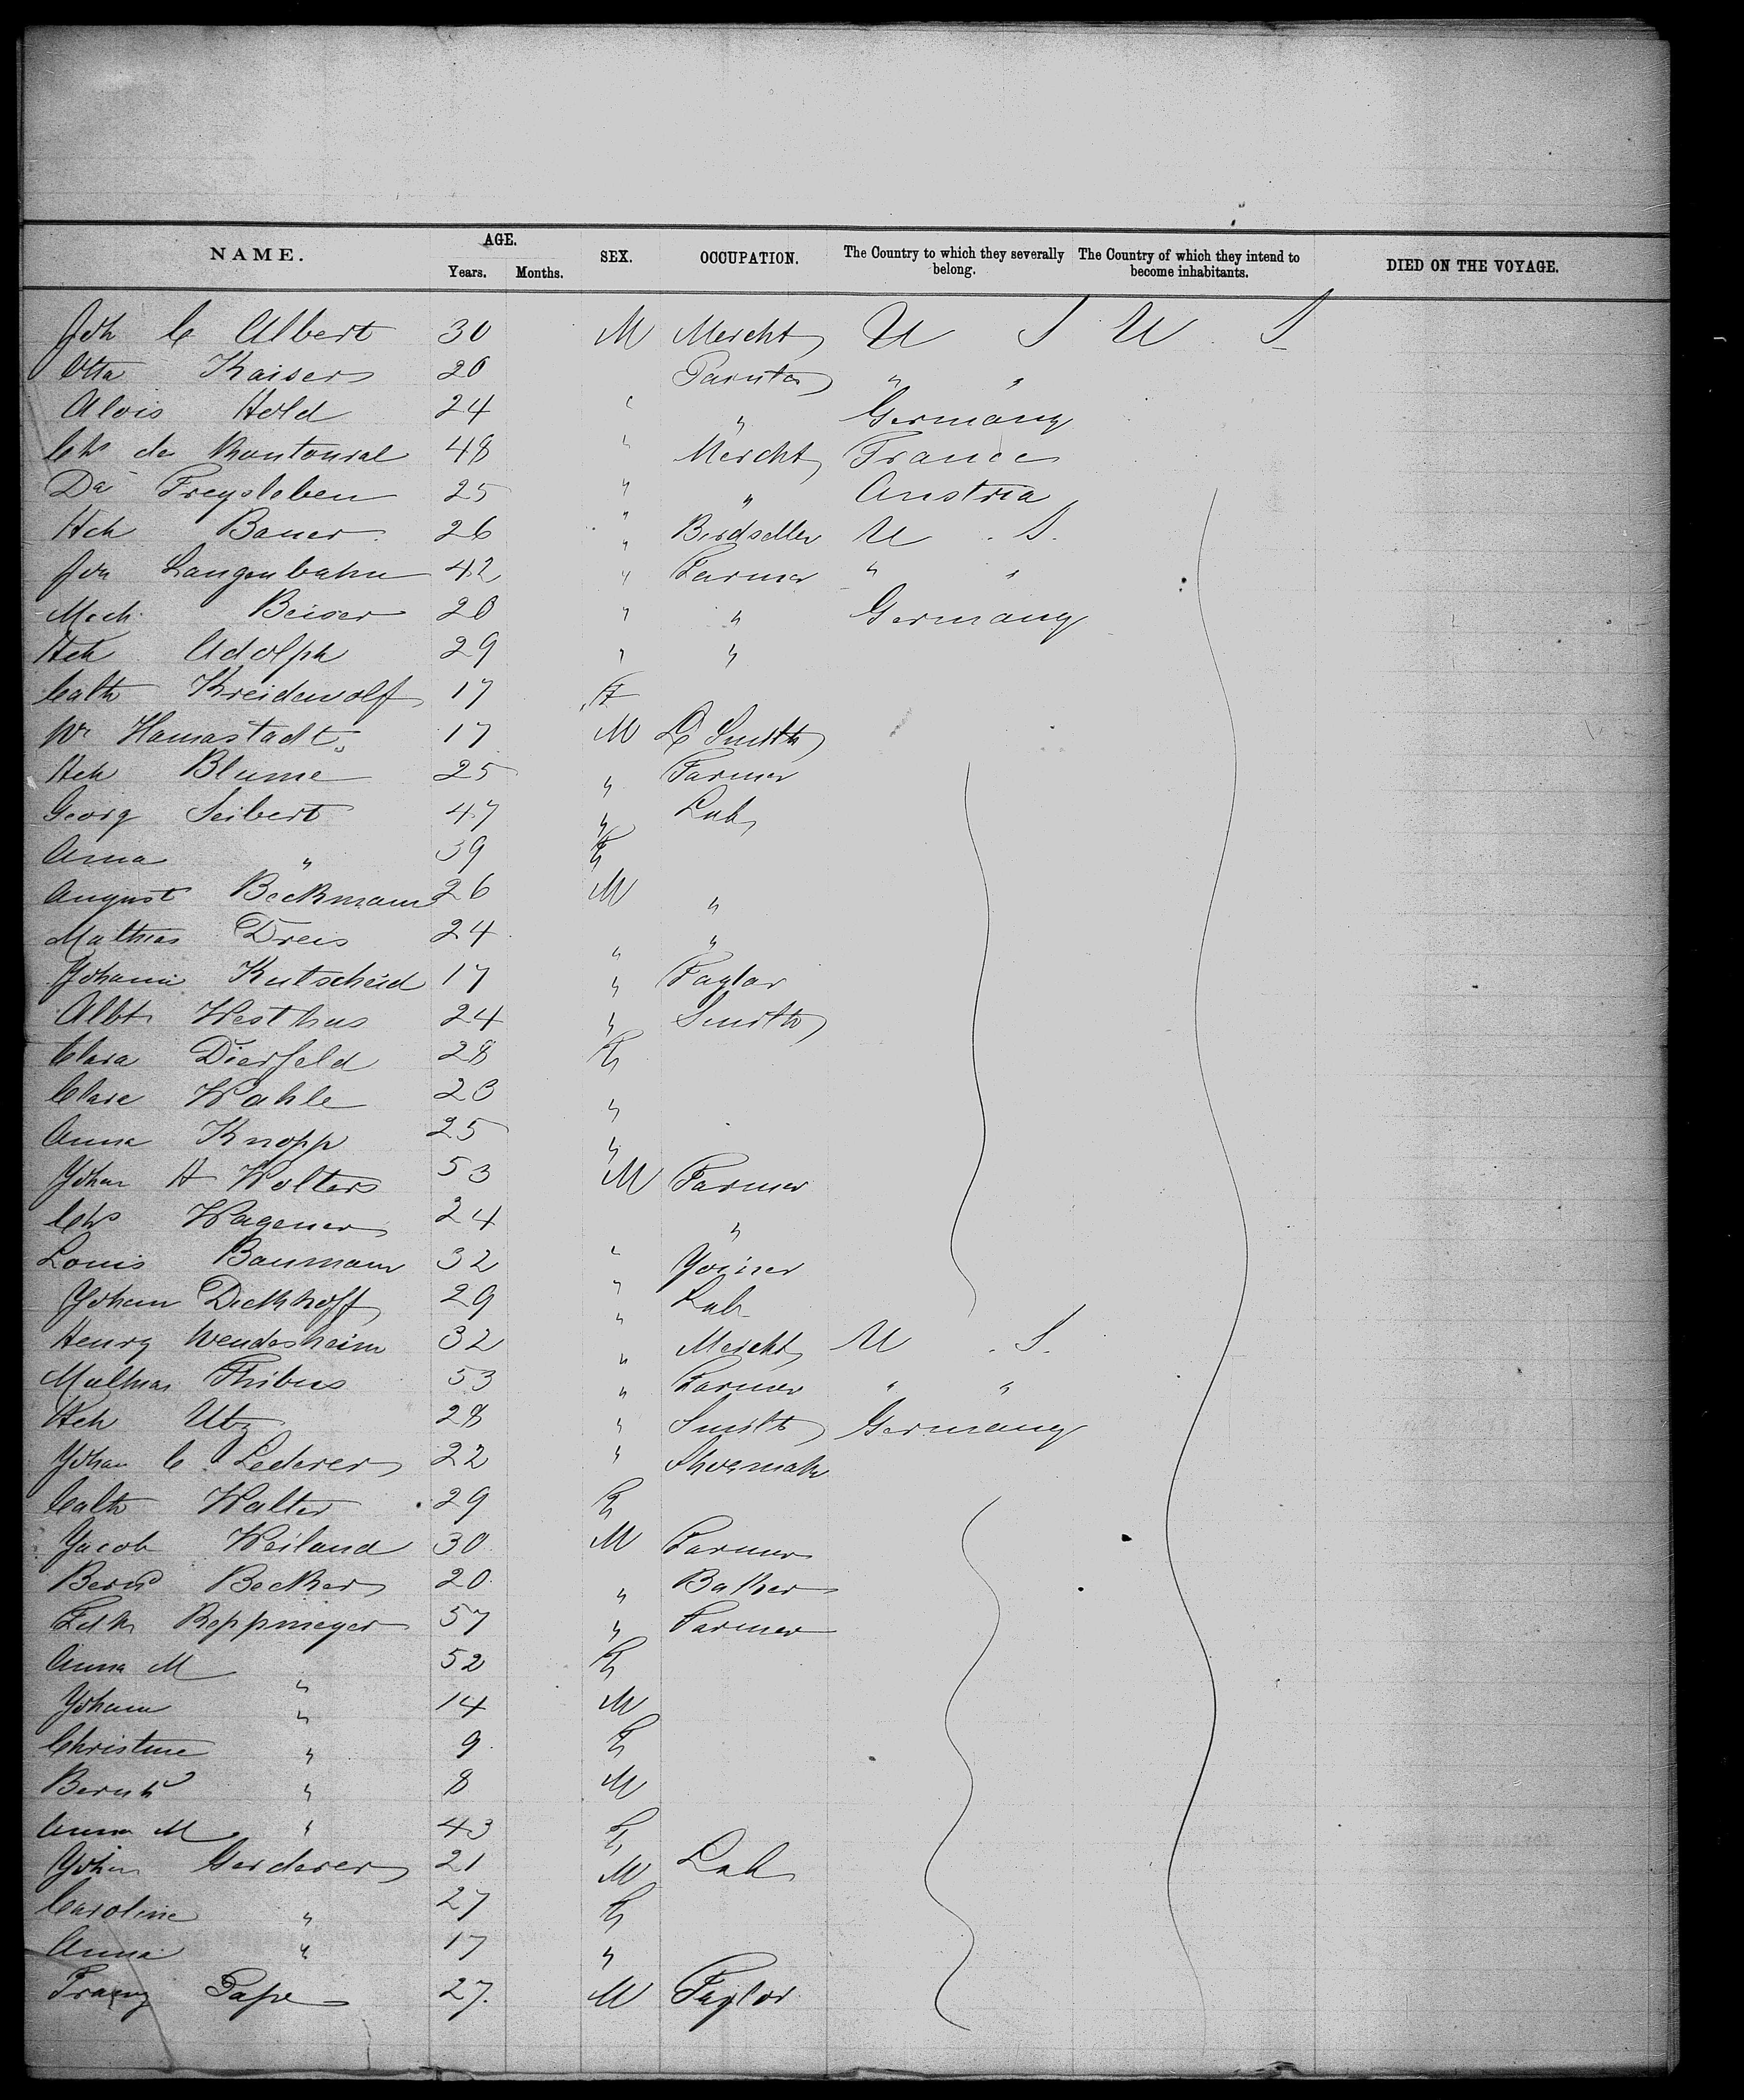 NAME. AGE. Years. Months. SEX. OCCUPATION. The Country to which they severally belong. The Country of which they intend to become inhabitants. DIED ON THE VOYAGE.
Joh C Albert 30 M Mercht U S U S
Otto Kaiser 20 Painter " "
Alois Held 24 " " Germany
Chs de 48 " Mercht France
Freysleben 25 " " Austria
Hch Bauer 26 " Birdseller U. S.
Jon Langenbahn 42 " Farmer " "
Mich Beiser 20 " " Germany
Hch Adolph 29 " "
Cath Kreidewolf 17 F
Wm Hamastadt 17 M Smith
Hch Blume 25 " Farmer
Georg Seibert 47 " Lab
Anna " 39 F
August Beckmann 26 M "
Mathias Dreis 24 " "
Johann Kutscheid 17 " Taylor
Albt Westhus 24 " Smith
Clara Dierfeld 28 F
Clara Wahle 23 "
Anna Knopp 25 "
Johan H Wolters 53 M Farmer
Chs Wagener 24 " "
Louis Baumann 32 " Joiner
Johan Dickhoff 29 " Lab
Henry Wendesheim 32 " Mercht U. S.
Mathias Thibus 53 " Farmer " "
Hch Utz 28 " Smith Germany
Johan C Lederer 22 " Shoemak
Cath Walter 29 F
Jacob Weiland 30 M Farmer
Bernd Becker 20 " Baker
Reppmeyer 57 " Farmer
Anna M " 52 F
Johann " 14 M
Christine " 9 F
Bernhd " 8 M
Anna M " 43 F
Johan Gerderer 21 M Lab
Caroline " 27 F
Anna " 17 "
Franz Pape 27 M Taylor